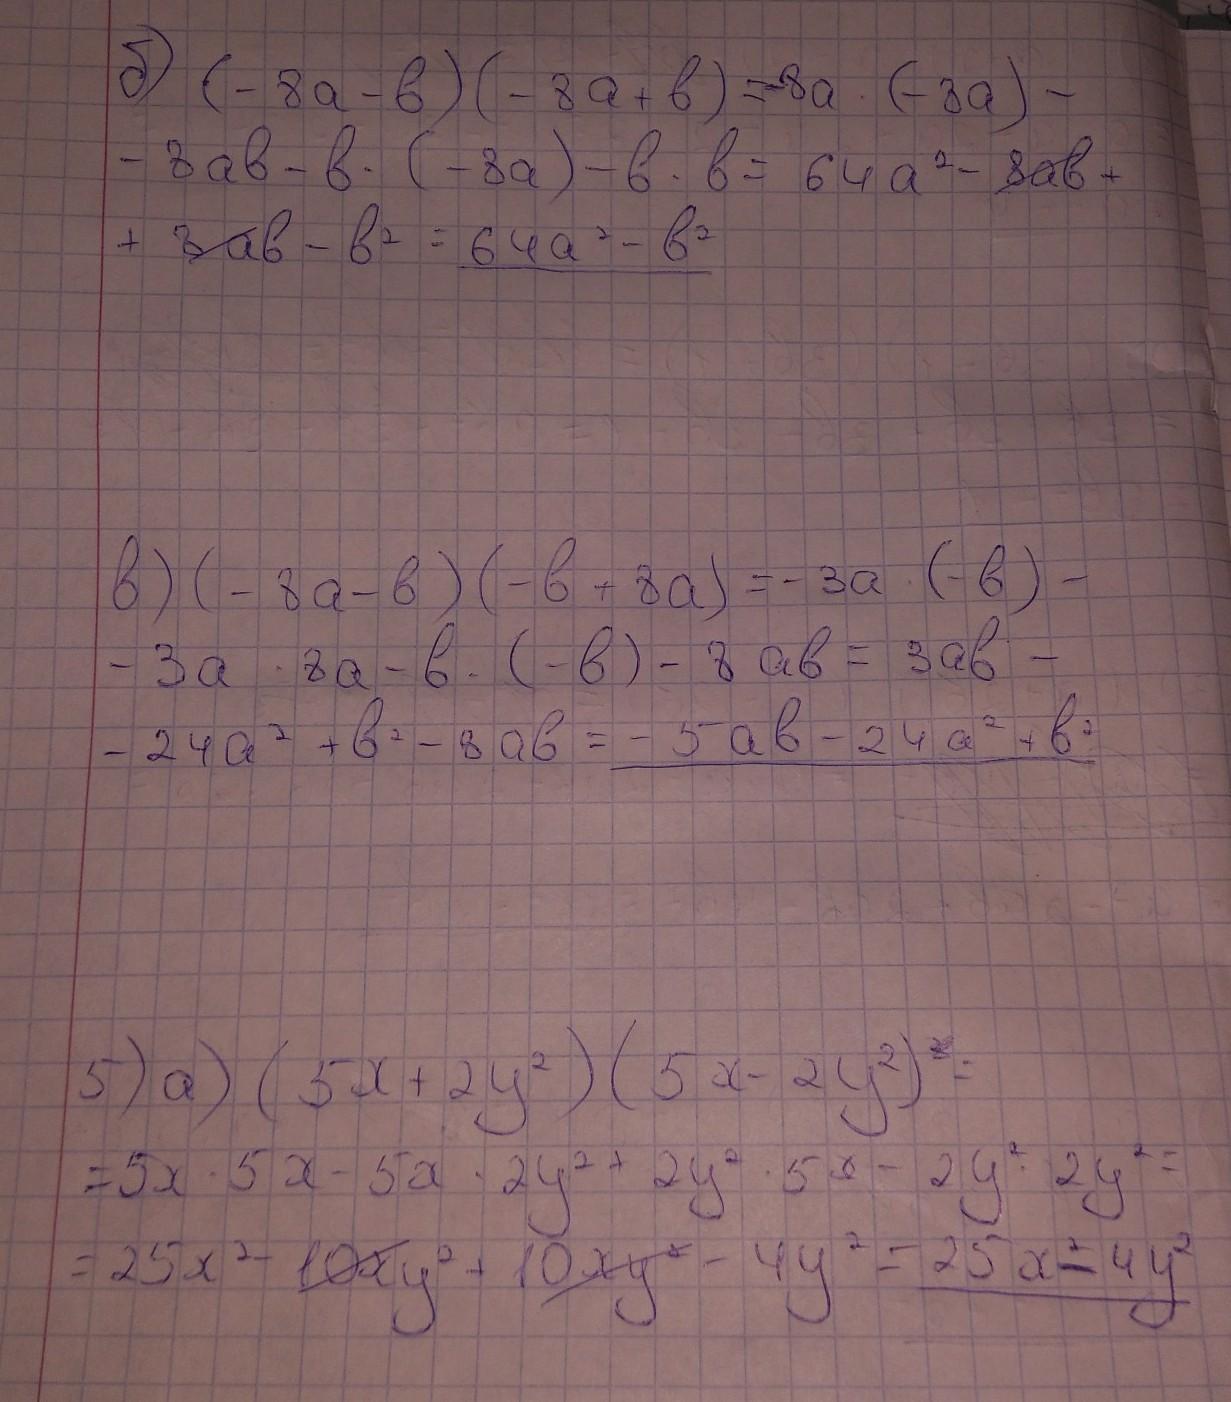 б) (-8a-b)(-8a+b)=-8a·(-8a)-
-8ab-b·(-8a)-b·b=64a²-8ab+
+8ab-b²=64a²-b²
в)(-8a-b)(-b+8a)=-3a·(-b)-
-3a·8a-b·(-b)-8ab=3ab-
-24a²+b²-8ab=-5ab-24a²+b²
5)a)(5x+2y²)(5x-2y²)=
=5x·5x-5x·2y²+2y²·5x-2y²·2y²=
=25x²-10xy²+10xy²-4y²=25x²-4y²